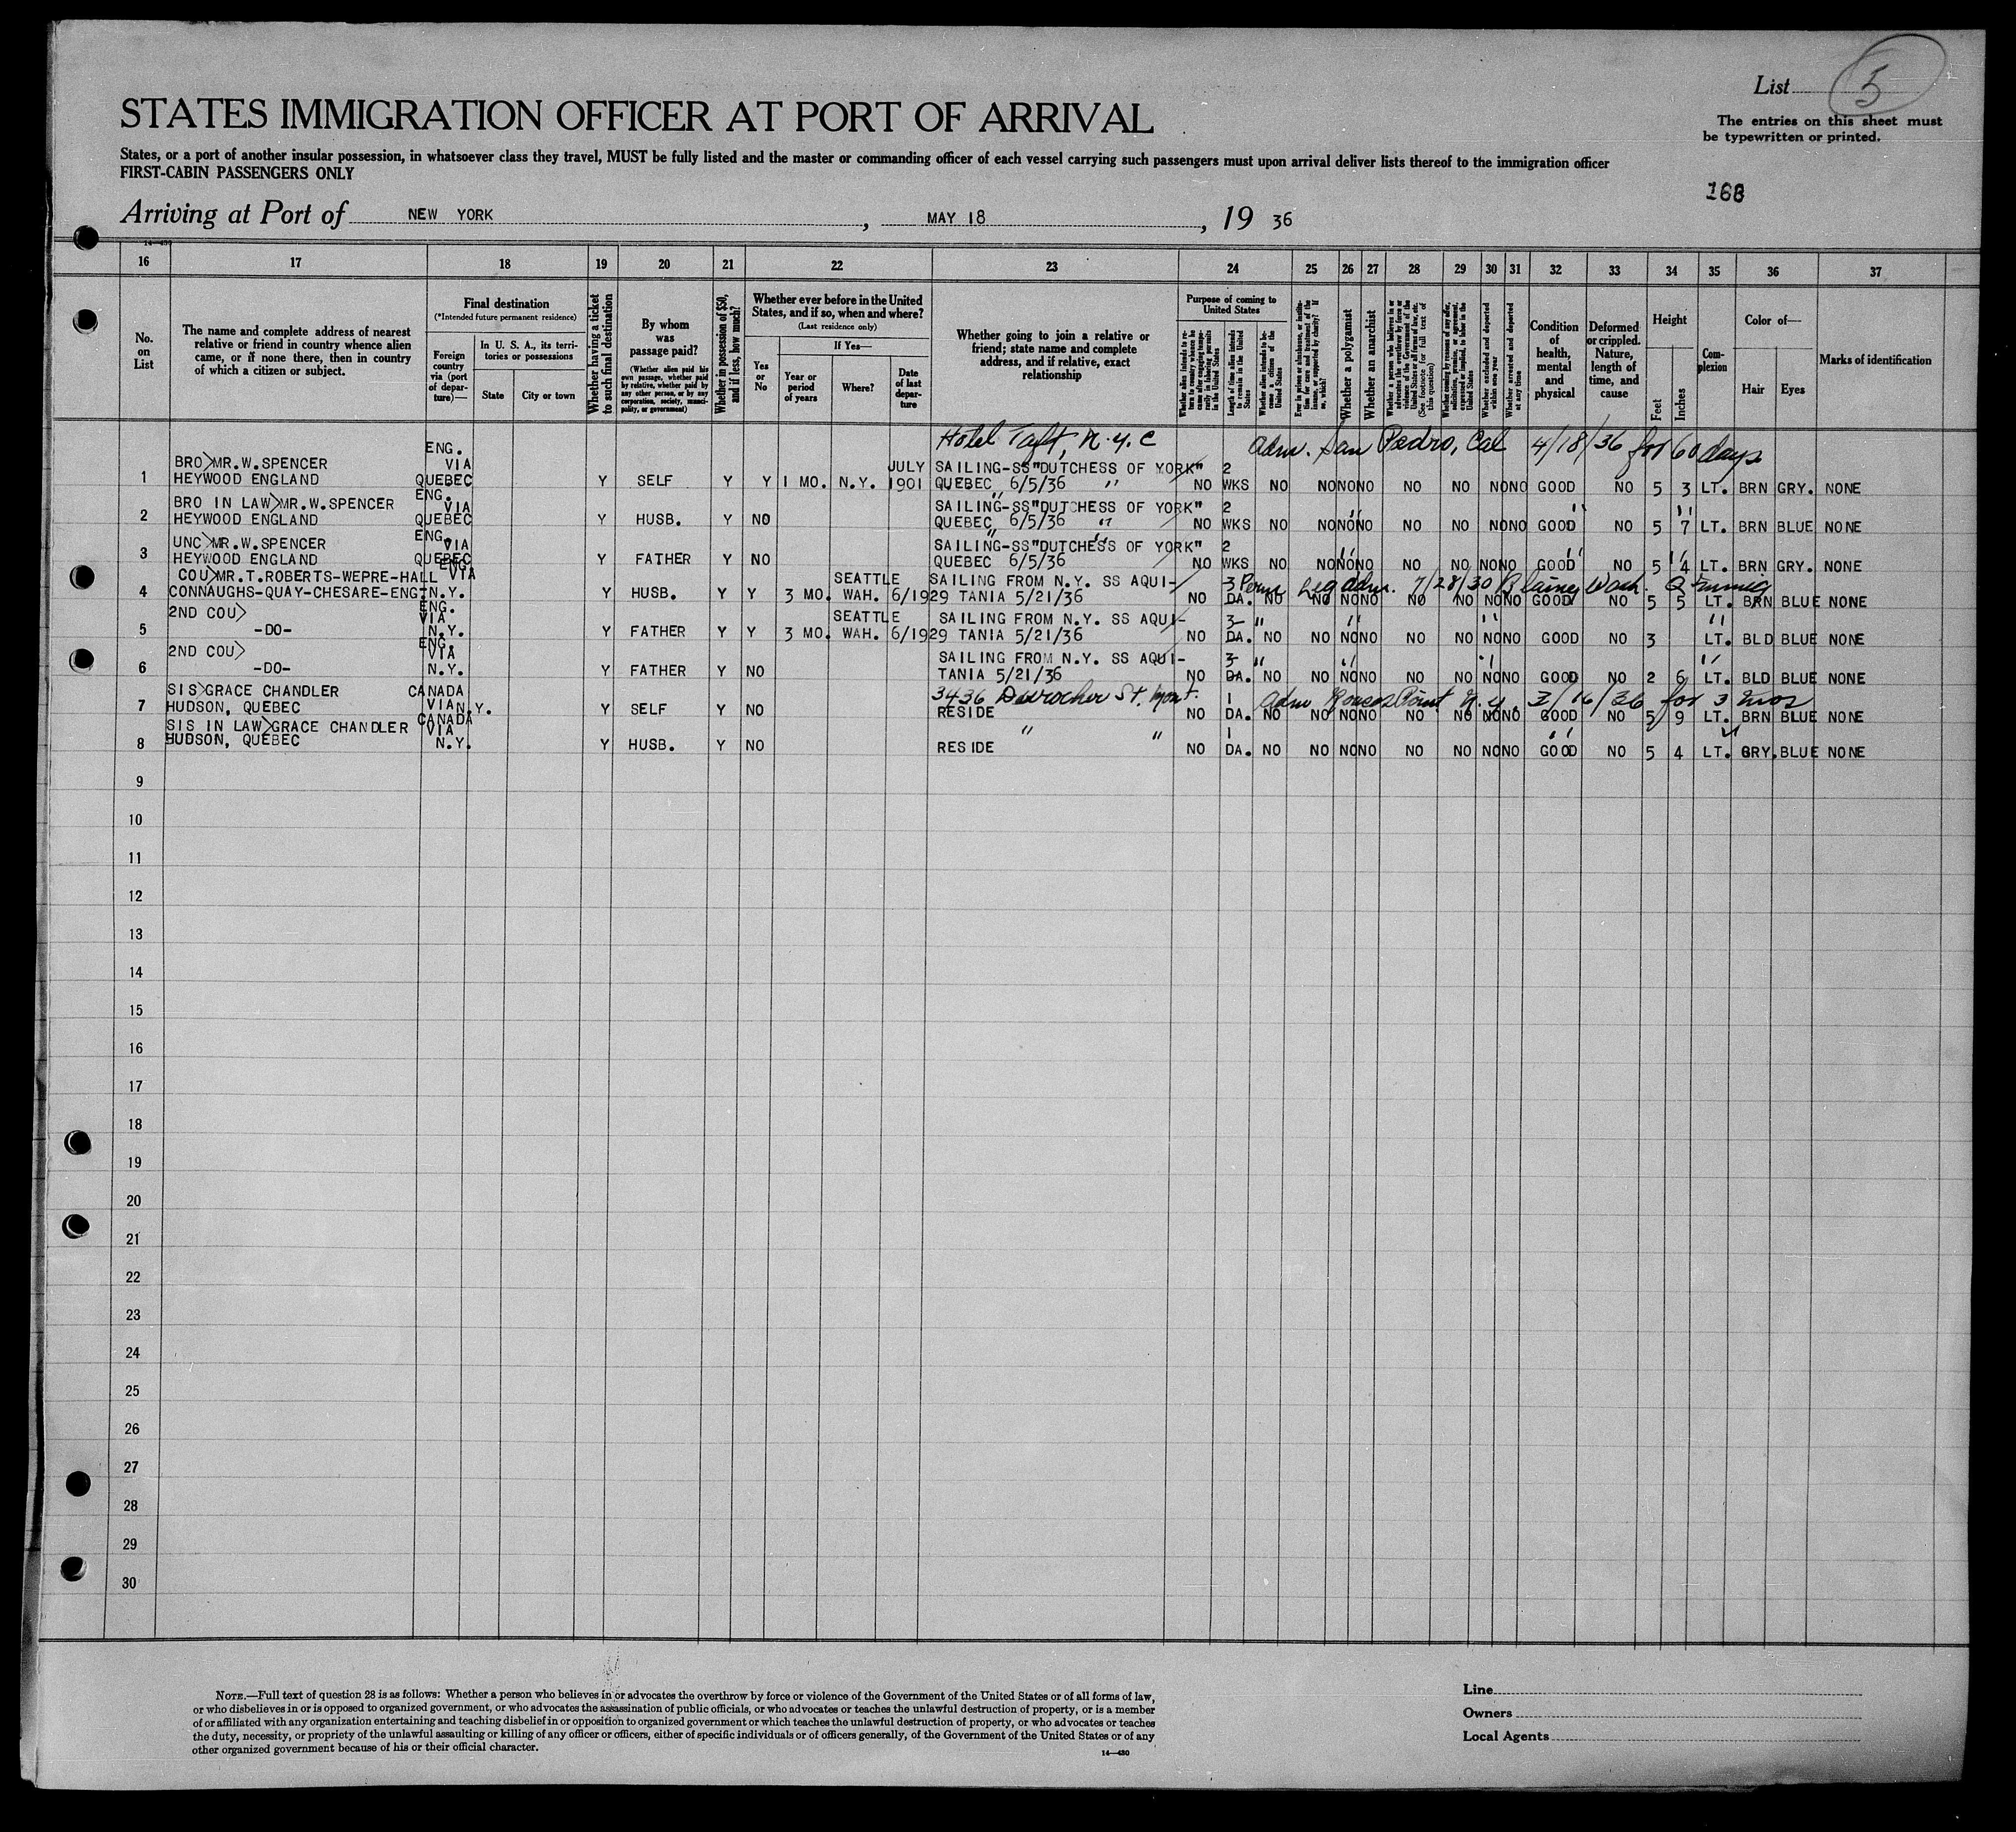 List 5
The entries on this sheet must
be typewritten or printed.
STATES IMMIGRATION OFFICER AT PORT OF ARRIVAL
States, or a port of another insular possession, in whatsoever class they travel, MUST be fully listed and the master or commanding officer of each vessel carrying such passengers must upon arrival deliver lists thereof to the immigration officer
FIRST-CABIN PASSENGERS ONLY
168
Arriving at Port of NEW YORK, MAY 18, 19 36
16 17 18 19 20 21 22 23 24 25 26 27 28 29 30 31 32 33 34 35 36 37
No.
on
List
The name and complete address of nearest
relative or friend in country whence alien
came, or if none there, then in country
of which a citizen or subject.
Final destination
(*Intended future permanent residence)
Foreign
country
via (port
of depar-
ture)—
In U. S. A., its terri-
tories or possessions
State
City or town
Whether having a ticket
to such final destination
By whom
was
passage paid?
(Whether alien paid his
own passage, whether paid
by relative, whether paid by
any other person, or by any
corporation, society, munici-
pality, or government)
Whether in possession of $50,
and if less, how much?
Whether ever before in the United
States, and if so, when and where?
(Last residence only)
Yes
or
No
If Yes—
Year or
period
of years
Where?
Date
of last
depar-
ture
Whether going to join a relative or
friend; state name and complete
address, and if relative, exact
relationship
Purpose of coming to
United States
Whether alien intends to re-
turn to country whence he
came after engaging tempo-
rarily in laboring pursuits
in the United States
Length of time alien intends
to remain in the United
States
Whether alien intends to be-
come a citizen of the
United States
Ever in prison or almshouse, or institu-
tion for care and treatment of the
insane, or supported by charity? If
so, which?
Whether a polygamist
Whether an anarchist
(See footnote for full text of
this question)
Whether excluded and deported
within one year
Whether arrested and deported
at any time
Condition
of
health,
mental
and
physical
Deformed
or crippled.
Nature,
length of
time, and
cause
Height
Feet
Inches
Com-
plexion
Color of—
Hair
Eyes
Marks of identification
Hotel Taft, N.Y.C Adm. San Pedro, Cal 4/18/36 for 60 days
BRO>MR.W.SPENCER ENG. VIA JULY SAILING-SS"DUTCHESS OF YORK" 2
1 HEYWOOD ENGLAND QUEBEC Y SELF Y Y 1 MO. N.Y. 1901 QUEBEC 6/5/36 " NO WKS NO NO NO NO NO NO NO NO GOOD NO 5 3 LT. BRN GRY. NONE
BRO IN LAW>MR.W.SPENCER ENG. VIA SAILING-SS"DUTCHESS OF YORK" 2
2 HEYWOOD ENGLAND QUEBEC Y HUSB. Y NO QUEBEC 6/5/36 " NO WKS NO NO NO NO NO NO NO NO GOOD NO 5 7 LT. BRN BLUE NONE
UNC>MR.W.SPENCER ENG. VIA SAILING-SS"DUTCHESS OF YORK" 2
3 HEYWOOD ENGLAND QUEBEC Y FATHER Y NO QUEBEC 6/5/36 NO WKS NO NO NO NO NO NO NO NO GOOD NO 5 4 LT. BRN GRY. NONE
COU>MR.T.ROBERTS-WEPRE-HALL ENG. VIA SEATTLE SAILING FROM N.Y. SS AQUI- 3 Perm Leg adm. 7/28/30 Blaine, Wash.
4 CONNAUGHS-QUAY-CHESARE-ENG N.Y. Y HUSB. Y Y 3 MO. WAH. 6/1929 TANIA 5/21/36 NO DA. NO NO NO NO NO NO NO NO GOOD NO 5 5 LT. BRN BLUE NONE
2ND COU> ENG. VIA SEATTLE SAILING FROM N.Y. SS AQUI- 3 "
5 -DO- N.Y. Y FATHER Y Y 3 MO. WAH. 6/1929 TANIA 5/21/36 NO DA. NO NO NO NO NO NO NO NO GOOD NO 3 LT. BLD BLUE NONE
2ND COU> ENG. VIA SAILING FROM N.Y. SS AQUI- 3 "
6 -DO- N.Y. Y FATHER Y NO TANIA 5/21/36 NO DA. NO NO NO NO NO NO NO NO GOOD NO 2 6 LT. BLD BLUE NONE
SIS>GRACE CHANDLER CANADA 3436 Durocher St. Mont. 1 Adm Rouses Point N.Y. 3/16/36 for 3 mos
7 HUDSON, QUEBEC VIA N.Y. Y SELF Y NO RESIDE NO DA. NO NO NO NO NO NO NO NO GOOD NO 5 9 LT. BRN BLUE NONE
SIS IN LAW>GRACE CHANDLER CANADA VIA " " 1
8 HUDSON, QUEBEC N.Y. Y HUSB. Y NO RESIDE NO DA. NO NO NO NO NO NO NO NO GOOD NO 5 4 LT. GRY. BLUE NONE
9
10
11
12
13
14
15
16
17
18
19
20
21
22
23
24
25
26
27
28
29
30
NOTE.—Full text of question 28 is as follows: Whether a person who believes in or advocates the overthrow by force or violence of the Government of the United States or of all forms of law,
or who disbelieves in or is opposed to organized government, or who advocates the assassination of public officials, or who advocates or teaches the unlawful destruction of property, or is a member
of or affiliated with any organization entertaining and teaching disbelief in or opposition to organized government or which teaches the unlawful destruction of property, or who advocates or teaches
the duty, necessity, or propriety of the unlawful assaulting or killing of any officer or officers, either of specific individuals or of officers generally, of the Government of the United States or of any
other organized government because of his or their official character.
14—430
Line
Owners
Local Agents